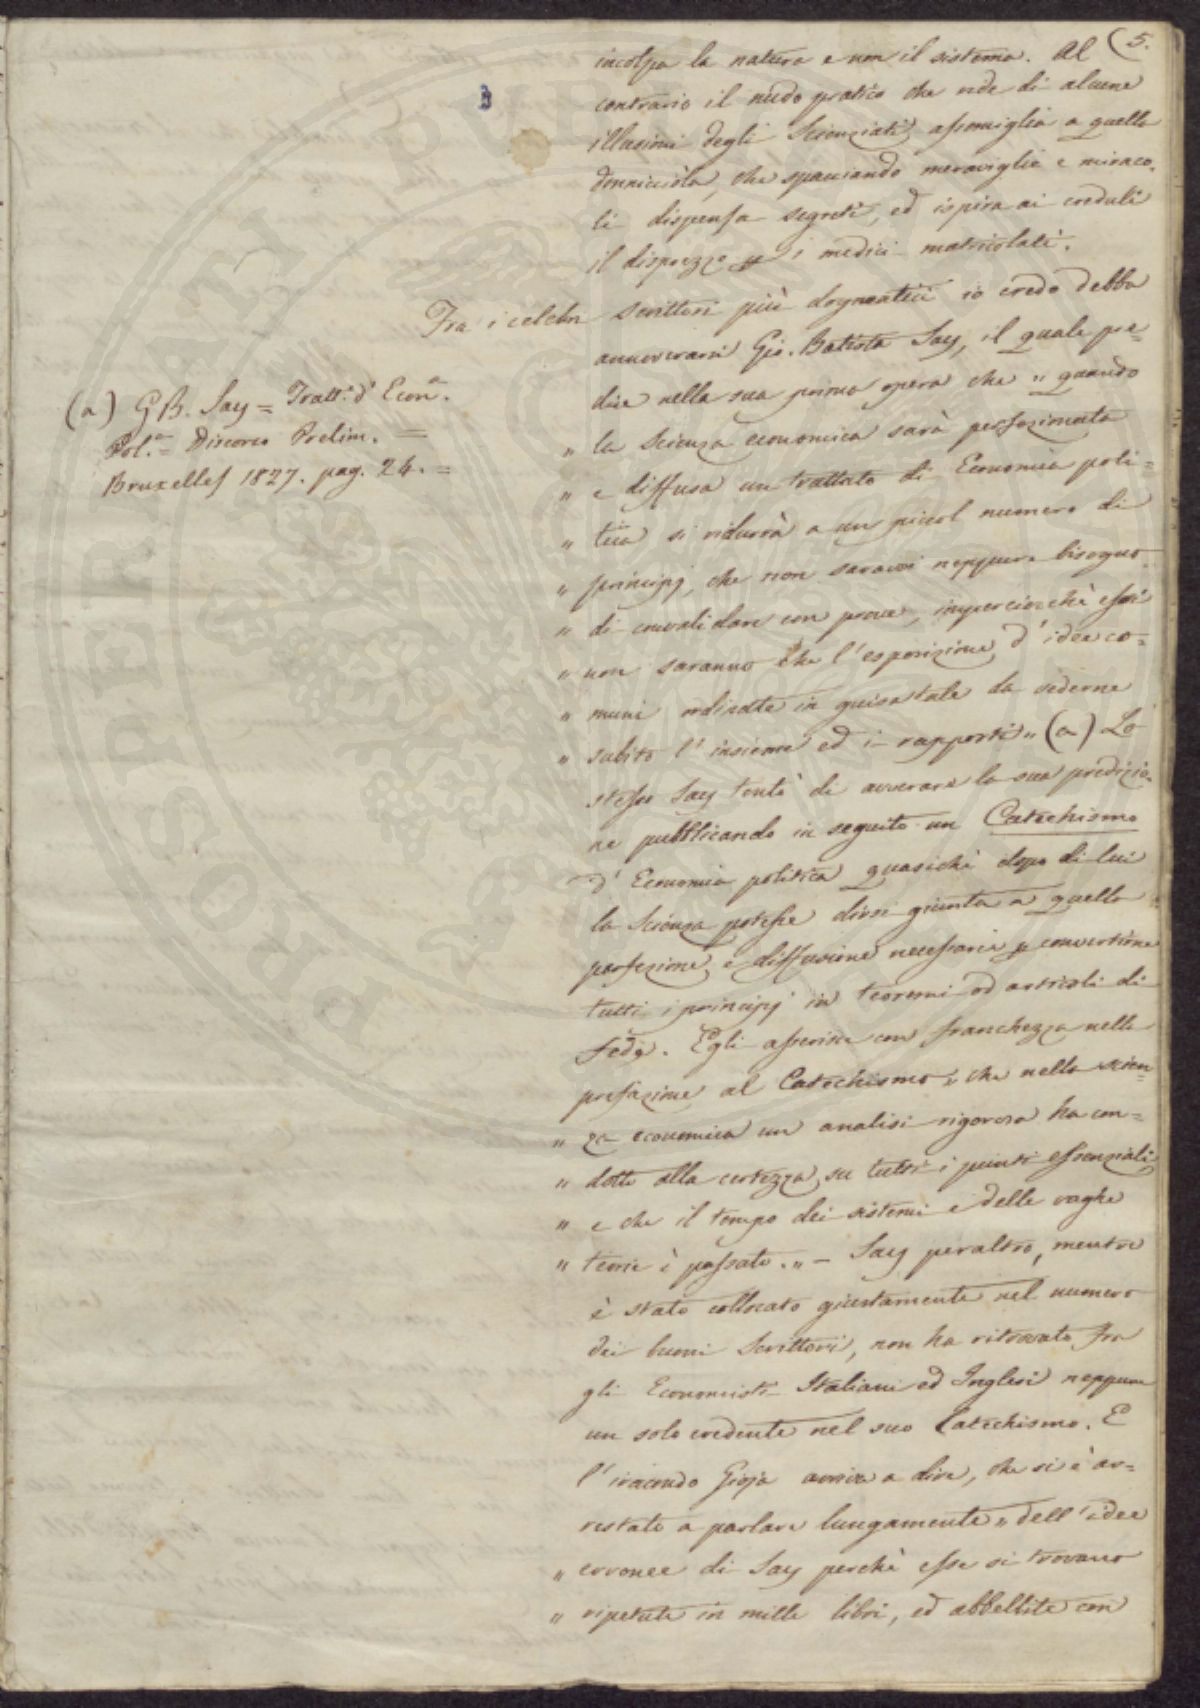 (5.
incolpa la natura e non il sistema. Al
contrario il nudo pratico che ride di alcune
illusioni degli Scienziati, assomiglia a quella
donnicciola, che spacciando meraviglie e miraco-
li dispensa segreti, ed ispira ai creduli
il disprezzo pr i medici matricolati.
Fra i celebri scrittori più dogmatici io credo debba
annoverarsi Gio. Batista Say, il quale pre=
dice nella sua prima opera che „ quando
„ la Scienza economica sarà perfezionata
„ e diffusa un trattato di Economia poli=
„ tica si ridurrà a un piccol numero di
„ principj, che non saravvi neppure bisogno
„ di convalidare con prove, imperciocchè essi
„ non saranno che l'esposizione d'idee co=
„ muni ordinate in guisa tale da vederne
„ subito l'insieme ed i rapporti „ (a) Lo
stesso Say tentò di avverare la sua predizio=
ne pubblicando in seguito un Catechismo
d'Economia politica quasichè dopo di lui
la Scienza potesse dirsi giunta a quella
perfezione e diffusione necessaria pr convertirne
tutti i principj in teoremi od articoli di
Fede. Egli asserisce con franchezza nella
prefazione al Catechismo „ che nella scien=
„ za economica un analisi rigorosa ha con=
„ dotto alla certezza su tutti i punti essenziali
„ e che il tempo dei sistemi e delle vaghe
„ teorie è passato. „ – Say peraltro, mentre
è stato collocato giustamente nel numero
dei buoni Scrittori, non ha ritrovato fra
gli Economisti Italiani ed Inglesi neppure
un solo credente nel suo Catechismo. E
l'iracondo Gioja arriva a dire, che si è ar=
restato a parlare lungamente „ dell'idee
„ erronee di Say perchè esse si trovano
„ ripetute in mille libri, ed abbellite con
(a) G.B. Say = Tratt.o d'Econ.a
Pol.a = Discorso Prelim. =
Bruxelles 1827. pag. 24. =